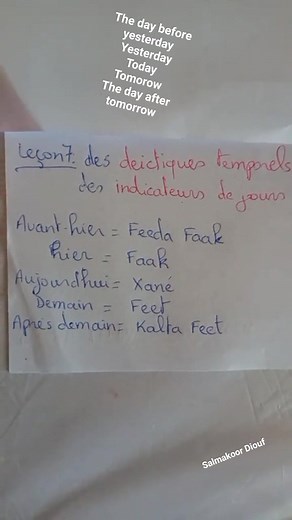 The day before
yesterday
Yesterday
Today
Tomorow
The day after
tomorrow
Leçon7: des deictiques temporels
des indicateurs de jours
Avant-hier = Feeda Faak
hier = Faak
Aujourdhui = Xané
Demain = Feet
Après demain = Kalta Feet
Salmakoor Diouf